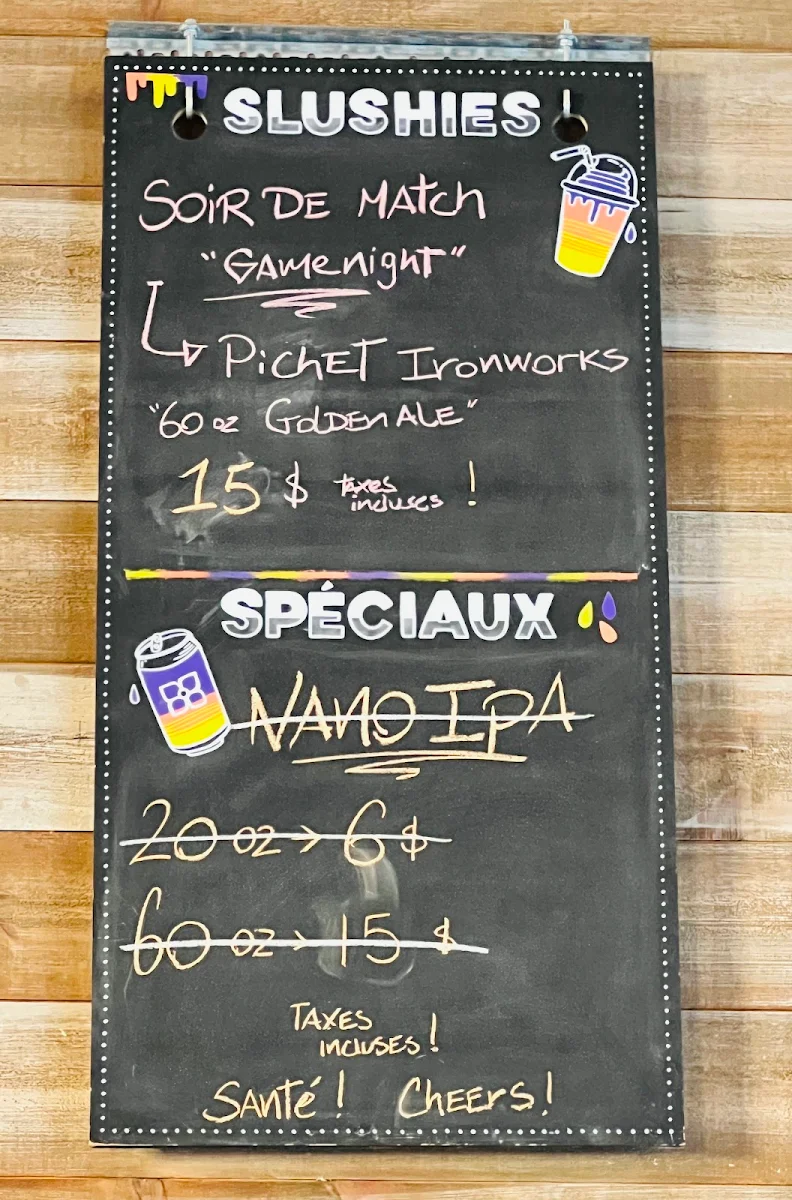 SLUSHIES
SOIR DE MATCH
"GAMEnight"
PICHET IRONWORKS
"60 oz GOLDEN ALE"
15 $ taxes
incluses !
SPÉCIAUX
NANO IPA
20 oz → 6 $
60 oz → 15 $
TAXES
INCLUSES !
SANTÉ ! CHEERS !